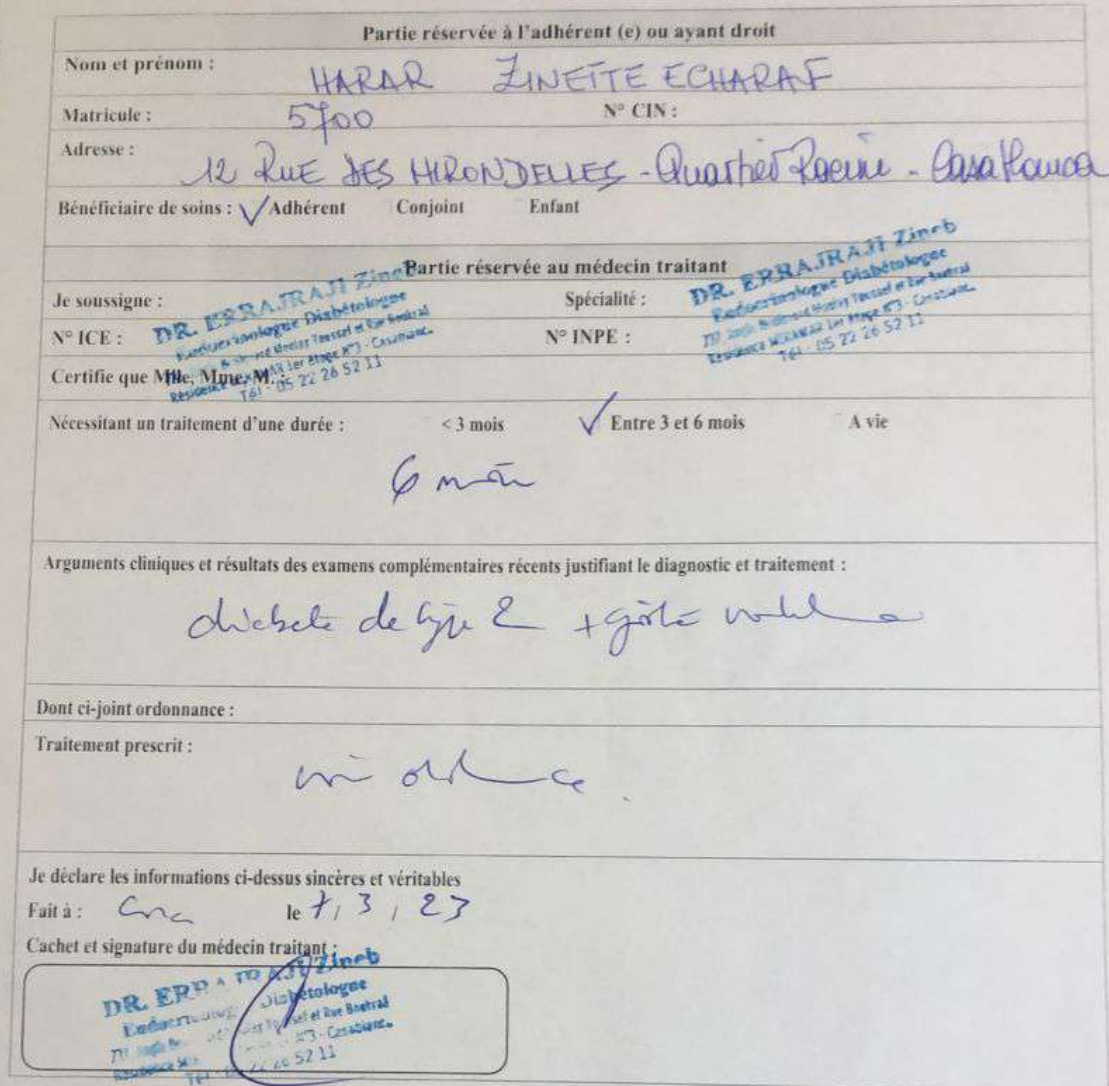 Partie réservée à l'adhérent (e) ou ayant droit
Nom et prénom : HARAR ZINETTE ECHARAF
Matricule : 5700 N° CIN :
Adresse : 12 RUE DES HIRONDELLES - Quartier Racine - Casablanca
Bénéficiaire de soins : ✓ Adhérent Conjoint Enfant
Partie réservée au médecin traitant
Je soussigne : Spécialité :
N° ICE : N° INPE :
DR. ERRAJRAJI Zineb
Endocrinologue Diabétologue
1er Etage N°3 - Casablanca
Tél - 05 22 26 52 11
DR. ERRAJRAJI Zineb
Endocrinologue Diabétologue
1er Etage N°3 - Casablanca
Tél - 05 22 26 52 11
Certifie que Mlle, Mme, M. :
Nécessitant un traitement d'une durée : < 3 mois ✓ Entre 3 et 6 mois A vie
6 mois
Arguments cliniques et résultats des examens complémentaires récents justifiant le diagnostic et traitement :
diabete de type 2 +
Dont ci-joint ordonnance :
Traitement prescrit :
ordonnance
Je déclare les informations ci-dessus sincères et véritables
Fait à : le 7 / 3 / 23
Cachet et signature du médecin traitant :
DR. Zineb
Diabétologue
N°3 - Casablanca
26 52 11